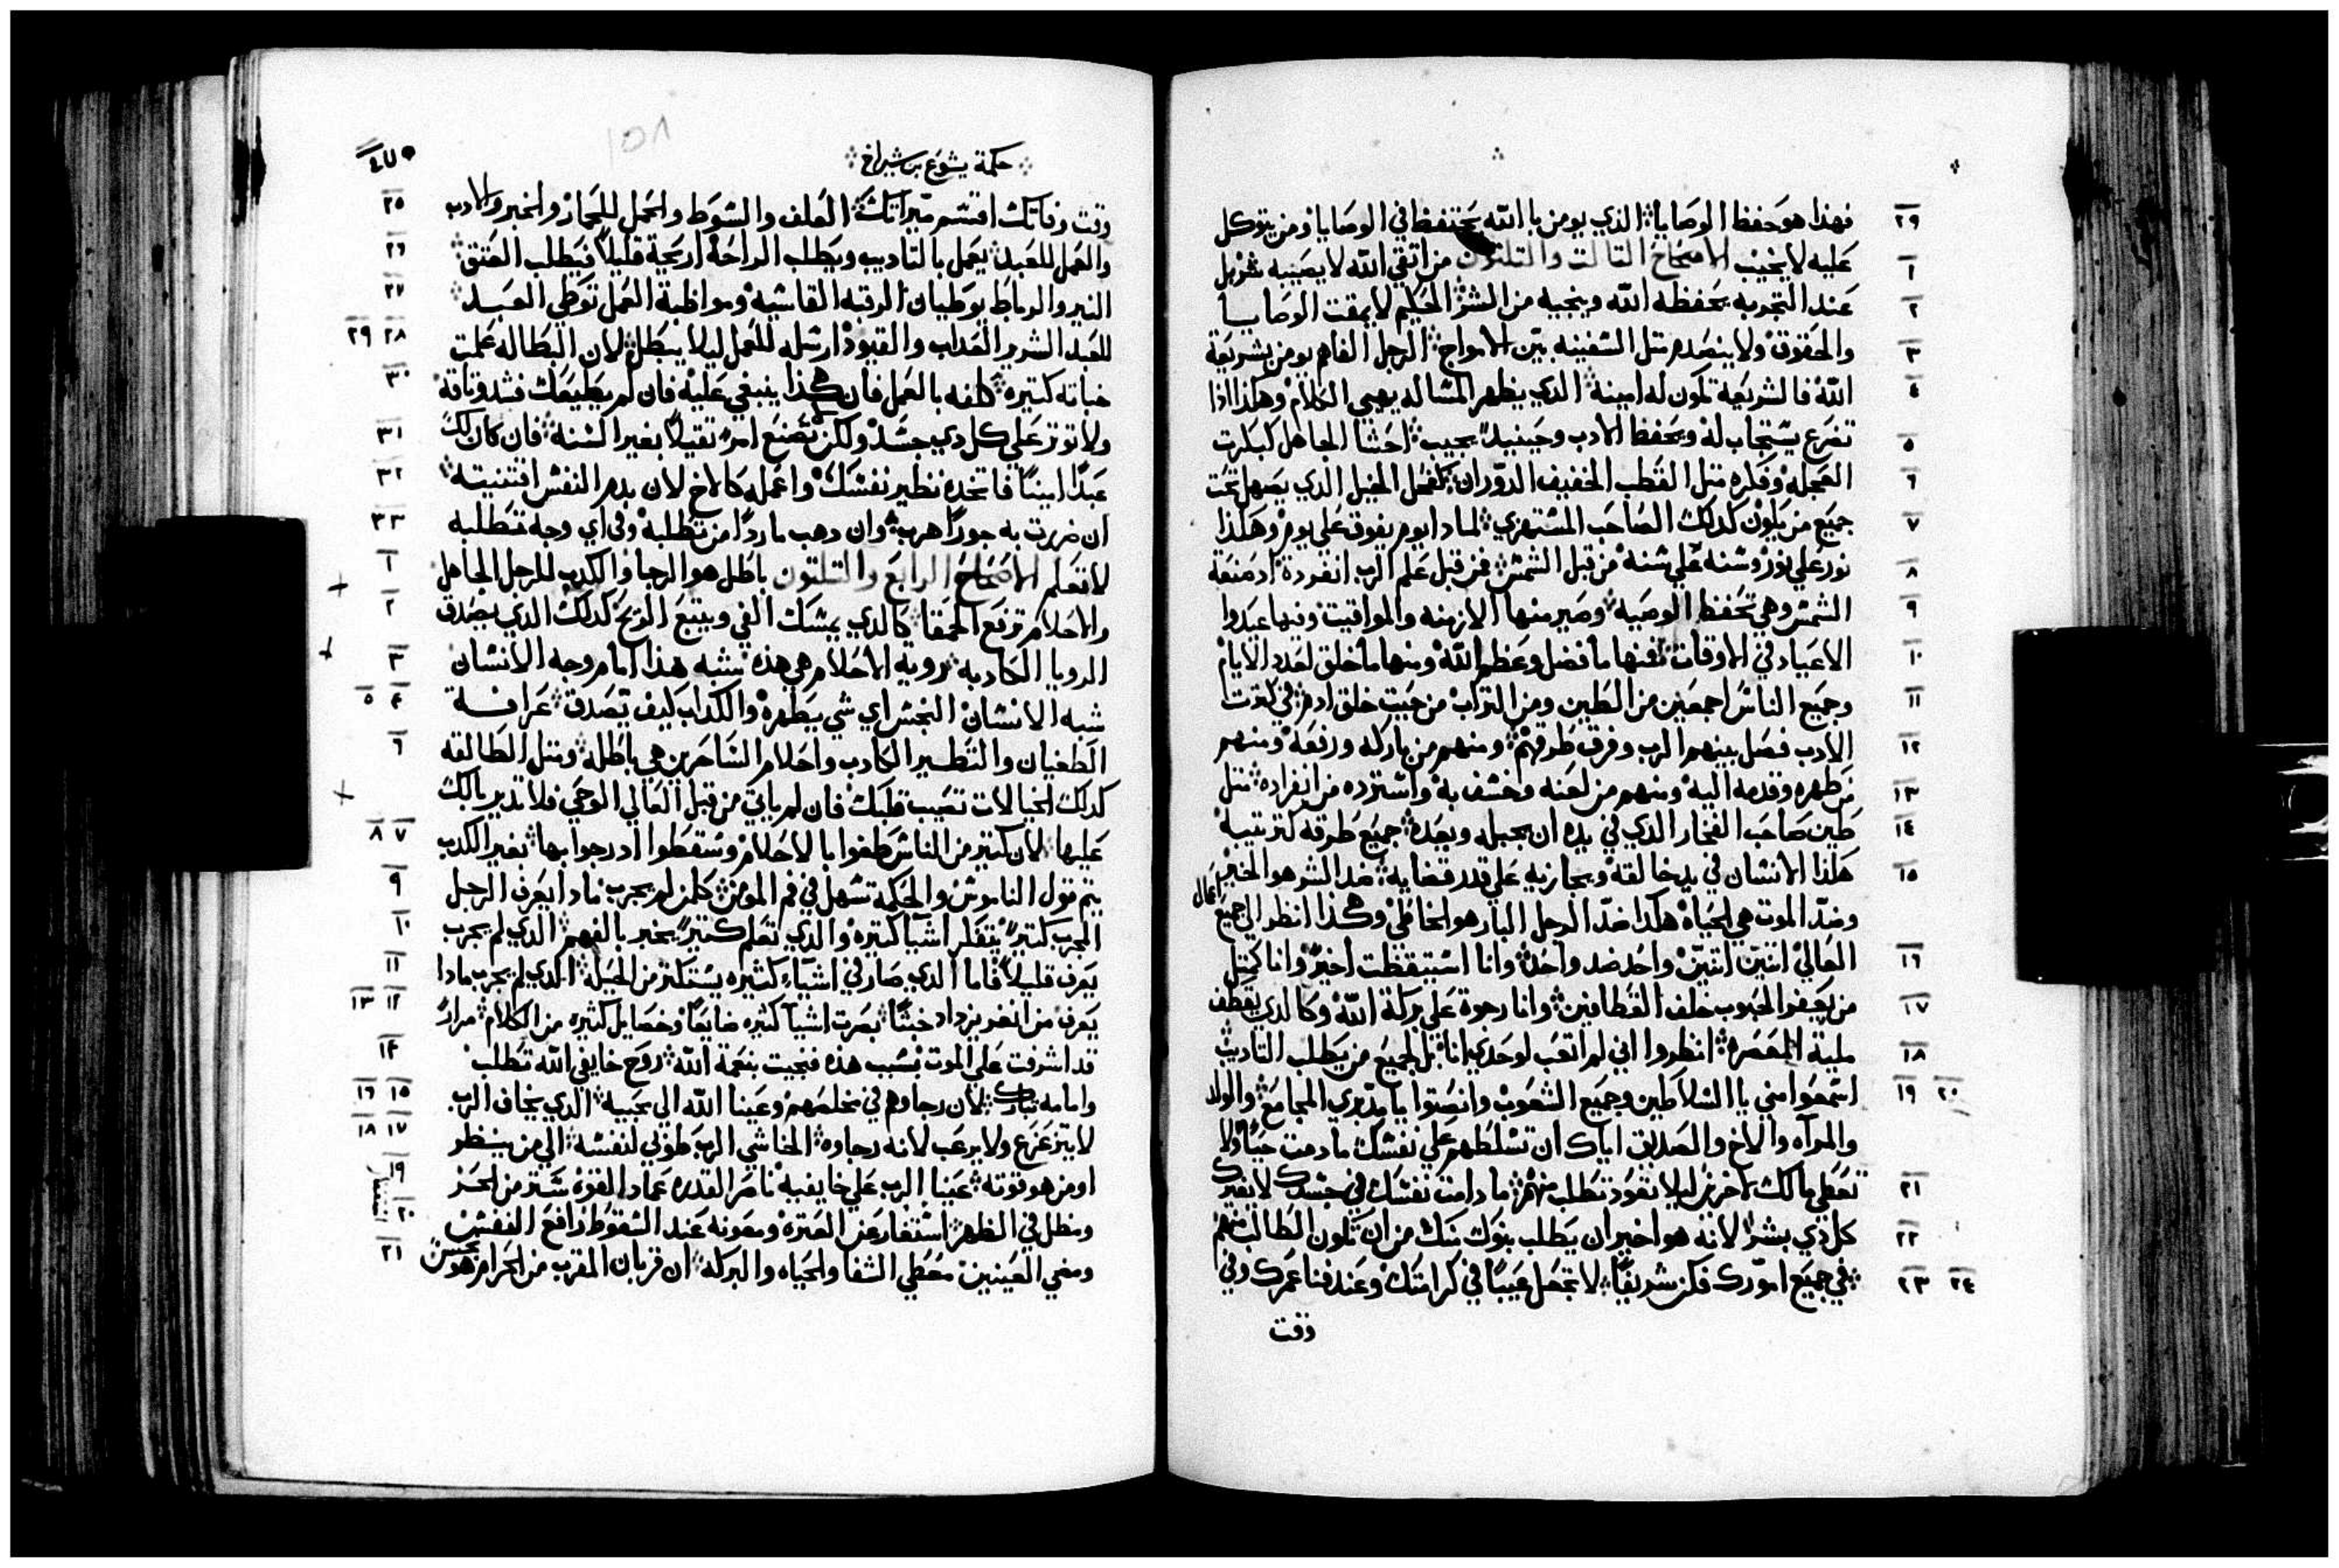 فهذا هو حفظ الوصايا الذي يومن باالله يحتفظ في الوصايا ومن يتوكل ٢٩
عليه لا يخيب الاصحاح التالت والتلتون من اتقي الله لا يصيبه شر بل ١
عند التجربه يحفظه الله وينجيه من الشر الحكيم لا يمقت الوصايا ٢
والحقوق ولا ينصدم متل السفينه بين الامواج الرجل الفاهم يومن بشريعة ٣
الله فالشريعة تكون له امينة الذي يظهر المساله يهيي الكلام وهكذا اذا ٤
تضرع يستجاب له ويحفظ الادب وحينيد يجيب احشا الجاهل كبكرت ٥
العجله وفكره متل القطب الخفيف الدوران كفحل الخيل الذي يصهل تحت ٦
جميع من يكون كدلك الصاحب المستهزي لمادا يوم يفوق علي يوم وهكذا ٧
نور علي نور وسنه علي سنه من قبل الشمس فمن قبل علم الرب انفرده اد صنعة ٨
الشمس وهي تحفظ الوصيه وصير منها الازمنه والمواقيت وفيها عيدوا ٩
الاعياد في الاوقات فمنها ما فضل وعظم الله ومنها ما خلق لعدد الايام ١٠
وجميع الناس اجمعين من الطين ومن التراب من حيت خلق ادم في كترت ١١
الادب فصل بينهم الرب وفرق طرقهم ومنهم من باركه ورفعه ومنهم ١٢
من طهره وقدمه اليه ومنهم من لعنه وخسف به واسترده من انفراده متل ١٣
طين صاحب الفخار الذي في يده ان يجبله ويعده جميع طرقه كترتيبه ١٤
هكذا الانسان في يد خالقه ويجازيه علي قدر قضايه ضد الشر هو الخير ١٥
وضد الموت هي الحياه هكدا ضد الرجل البار هو الخاطي وهكذا انظر الي جميع اعمال
العالي اتنين اتنين واحد ضد واحد وانا استيقظت اخير وانا كمتل ١٦
من يعفو الحبوب خلف القطافين وانا رجوة علي بركة الله وكالذي يقطف ١٧
مليه المعصره انظروا اني لم اتعب لوحدي انا بل لجميع من يطلب التاديب ١٨
اسمعوا مني يا السلاطين وجميع الشعوب وانصتوا يا مدبري المجامع والولد ١٩ ٢٠
والمرآه والاخ والصديق اياك ان تسلطهم علي نفسك ما دمت حيا ولا
تعطي مالك لاخر ليلا تعود تطلب منهم ما دامت نفسك في جسدك لا يغيرك ٢١
كل ذي بشر لانه هو اخير ان يطلب بنوك منك من ان تكون الطالب منهم ٢٢
في جميع امورك فكن شريفا لا تجعل عيبا في كرامتك وعند فنا عمرك وفي ٢٣ ٢٤
وقت
حكمة يشوع بن شيراخ
١٥٨
وقت وفاتك اقتسم ميراتك العلف والسوط والحمل للحمار والخبز والادب ٢٥
والعمل للعبد يعمل بالتاديب ويطلب الراحة ارحية قليلا فيطلب العتق ٢٦
النير والرباط يوطيان الرقبه القاسيه ومواظبة العمل توطي العبد ٢٧
للعبد الشرير العداب والقيود ارسله للعمل ليلا يبطل لان البطاله علمت ٢٨ ٢٩
خباته كتيره كلفه بالعمل فان هكدا ينبغي عليه فان لم يطيعك فشد وتاقه ٣٠
ولا توتر علي كل دي جسد ولكن تصنع امر تقيلا بغير السنه فان كان لك ٣١
عبدا امينا فاتخده نظير نفسك واعمله كالاخ لان بدم النفس اقتنيته ٣٢
ان ضررت به جورا هرب وان دهب ماردا من تطلبه وفي اي وجه تتطلبه ٣٣
لا تعلم الاصحاح الرابع والتلتون باطل هو الرجا والكدب للرجل الجاهل ١
والاحلام ترفع الحمقا كالدي يمسك الفي ويتبع الريح كدلك الدي يصدق ٢
الرويا الكادبه روية الاحلام هي هذه شبه هذا امام وجه الانسان ٣
شبه الانسان النجس اي شي يطهره والكداب كيف يصدق عرافة ٤ ٥
الطغيان والتطير الكادب واحلام الساحرين هي باطله ومتل الطالقه ٦
كدلك الخيالات تعيب قلبك فان لم ياتي من قبل العالي الوحي فلا تدير بالك
عليها لان كتير من الناس طغوا بالاحلام وسقطوا اد رجوا بها بغير الكدب ٧ ٨
يتم قول الناموس والحكمة تسهل في فم المومن كلمن لم يجرب مادا يعرف الرجل ٩
المجرب كتير يتفكر اشيا كتيره والذي تعلم كتير يخبر بالفهم الدي لم يجرب ١٠
يعرف قليلا فاما الدي صار في اشياء كثيره يستكتر من الحيلة الدي لم يجرب مادا ١١
يعرف من انغر يزداد خبثا بصرت اشيآ كثيره ضايعا وخصايل كثيره من الكلام مرار ١٢ ١٣
قد اشرفت علي الموت بسبب هذه فنجيت بنعمة الله روح خايفي الله تطلب ١٤
وامامه تبارك لان رجاوهم في مخلصهم وعينا الله الي محبيه الدي يخاف الرب ١٥ ١٦
لا يتزعزع ولا يرعب لانه رجاوه الخاشي الرب طوبي لنفسه الي من ينظر ١٧ ١٨
او من هو قوته عينا الرب علي خايفيه ناصر القدره عماد القوة ستر من الحر ١٩
ومظل في الظهر استغفار عن العترة ومعونه عند السقوط رافع النفس ٢٠
ومضي العينين معطي الشفا والحياه والبركه ان قربان المقرب من الحرام هو نجس ٢١